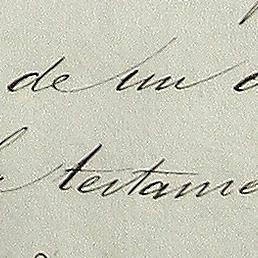 de un
testame